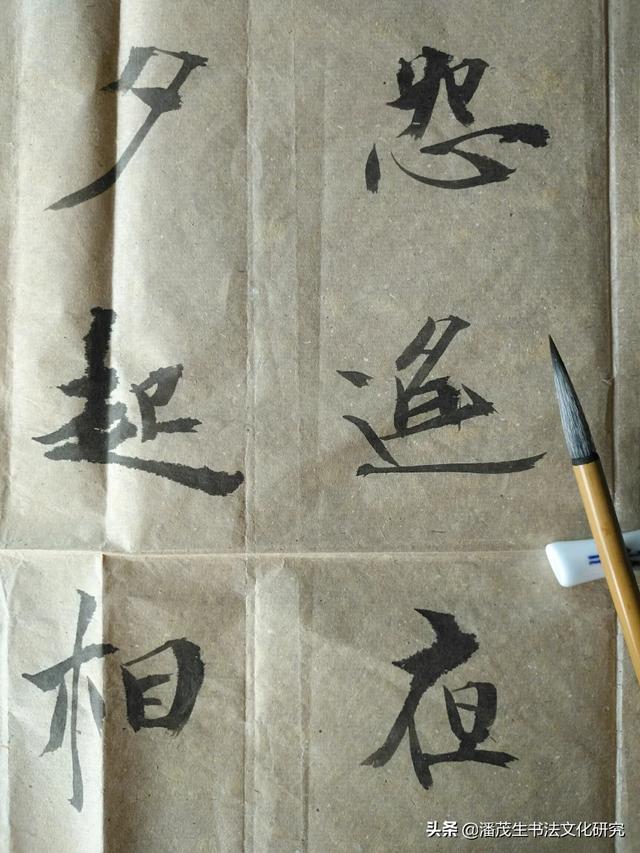 怨遙亱
夕起相
头条 @潘茂生书法文化研究